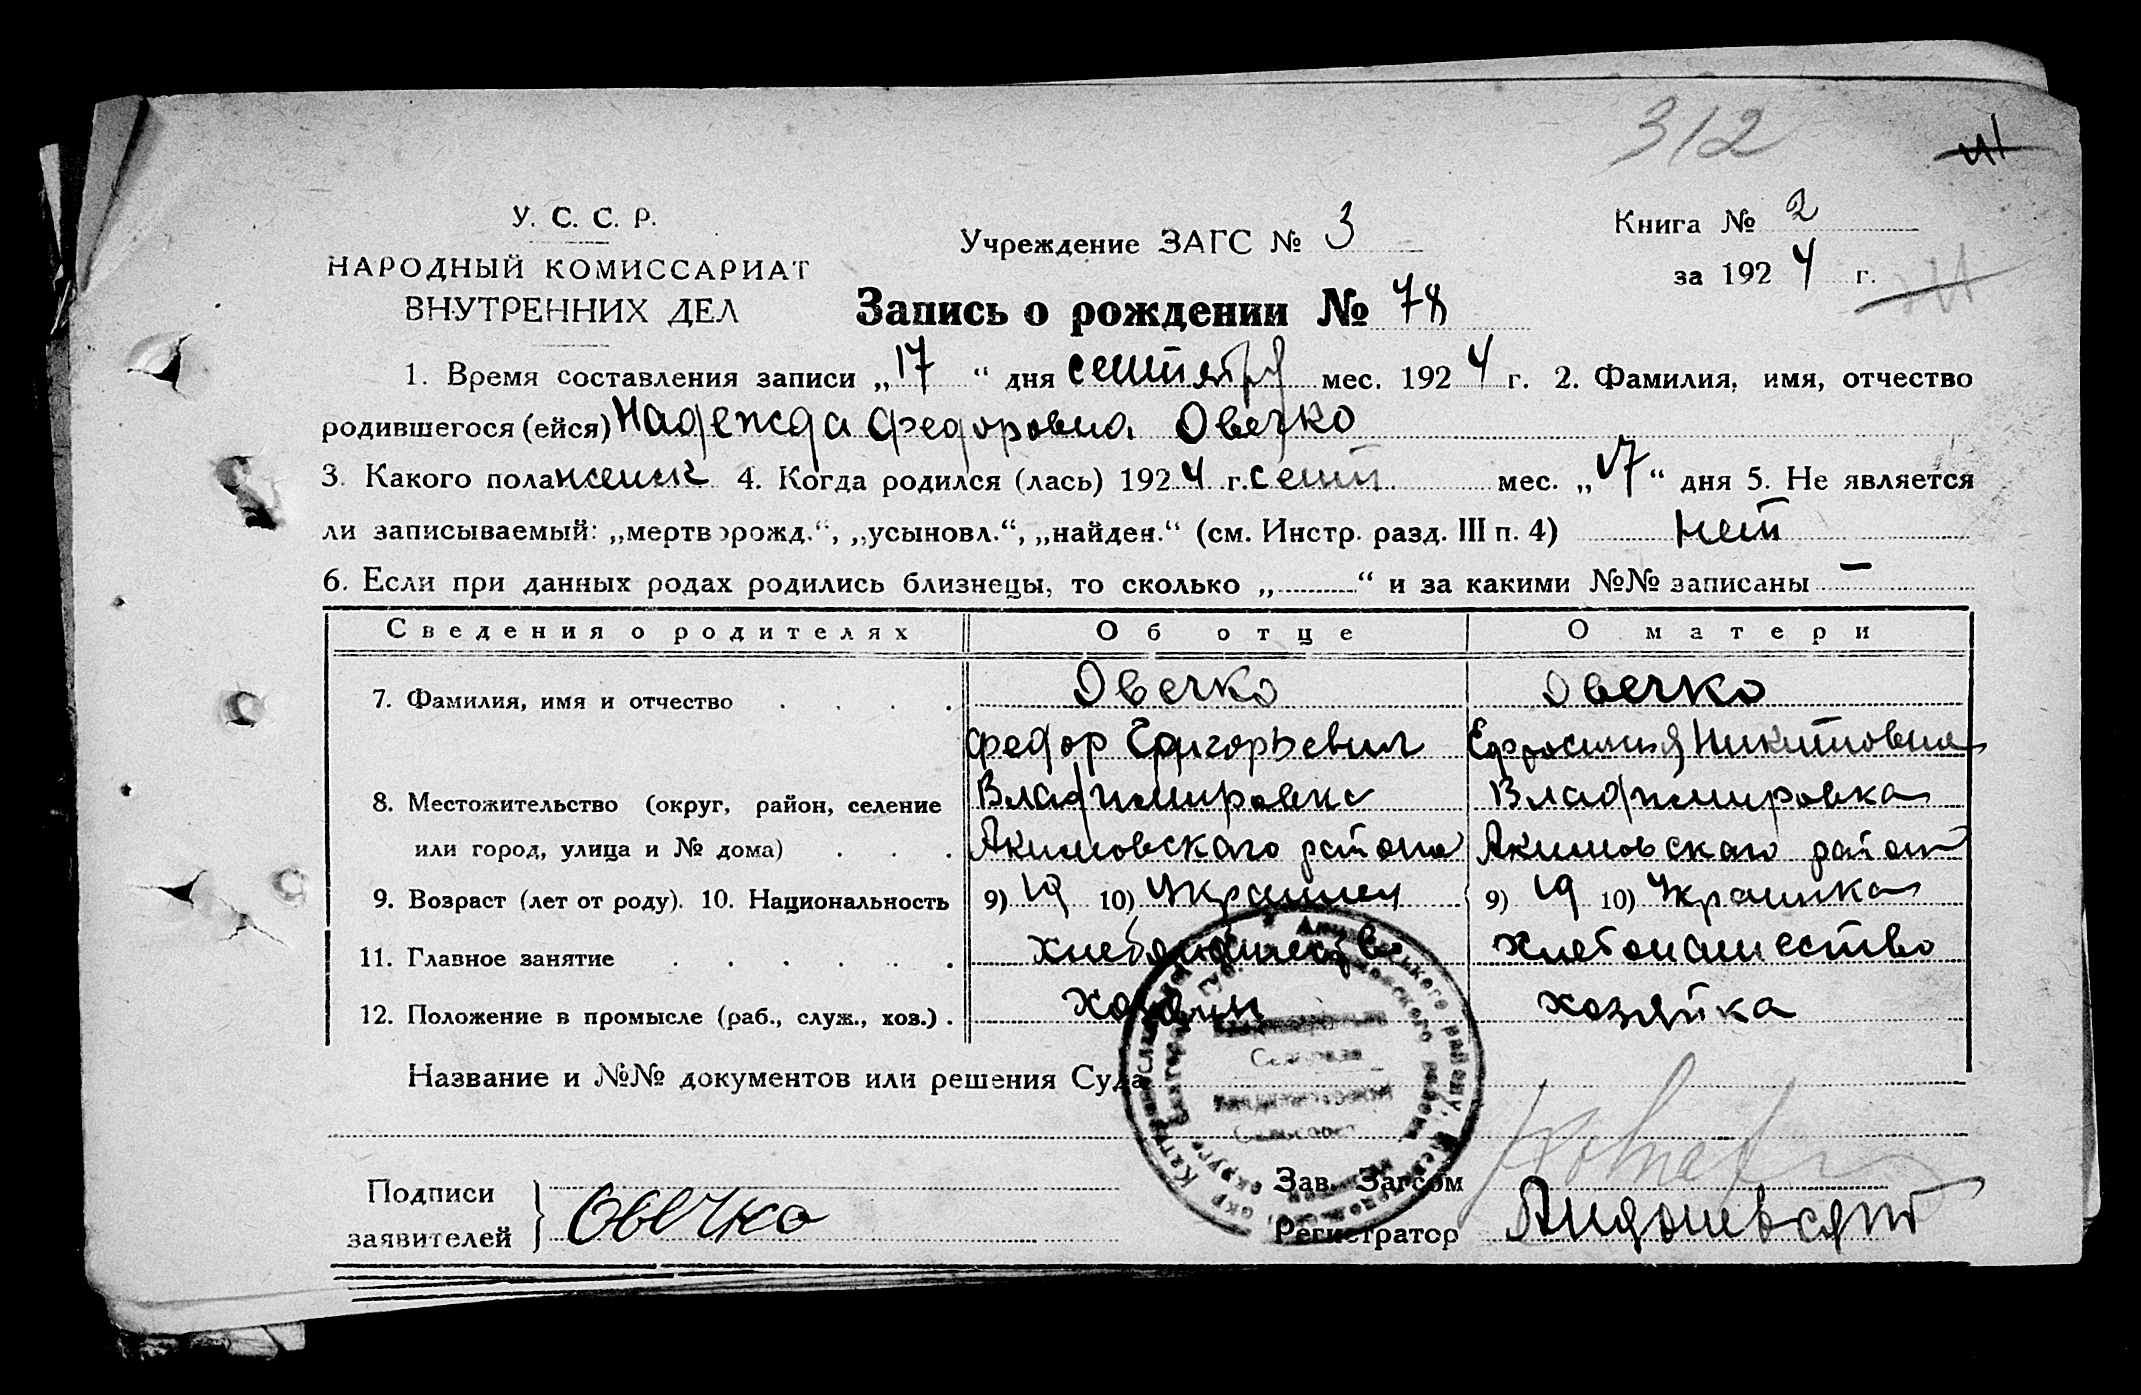 312
У. С. С. Р.
НАРОДНЫЙ КОМИССАРИАТ
ВНУТРЕННИХ ДЕЛ
Учреждение ЗАГС № 3
Книга № 2
за 192 4 г.
Запись о рождении № 78
1. Время составления записи „17“ дня сентября мес. 192 4 г. 2. Фамилия, имя, отчество
родившегося (ейся) Надежда Федоровна Овечко
3. Какого пола женск 4. Когда родился (лась) 192 4 г. сент мес. „17“ дня 5. Не является
ли записываемый: „мертворожд.“, „усыновл.“, „найден.“ (см. Инстр. разд. III п. 4) нет
6. Если при данных родах родились близнецы, то сколько „..........“ и за какими №№ записаны —
Сведения о родителях Об отце О матери
7. Фамилия, имя и отчество . . . . Овечко Овечко
Федор Григорьевич Ефросиния Никитовна
8. Местожительство (округ, район, селение Владимировка Владимировка
или город, улица и № дома) . . . Акимовскаго района Акимовскаго район
9. Возраст (лет от роду). 10. Национальность 9) 19 10) Украинец 9) 19 10) Украинка
11. Главное занятие . . . . . . хлебопашество хлебопашество
12. Положение в промысле (раб., служ., хоз.) . хозяин хозяйка
Название и №№ документов или решения Суда
Подписи
заявителей } Овечко
Зав. Загсом
Регистратор